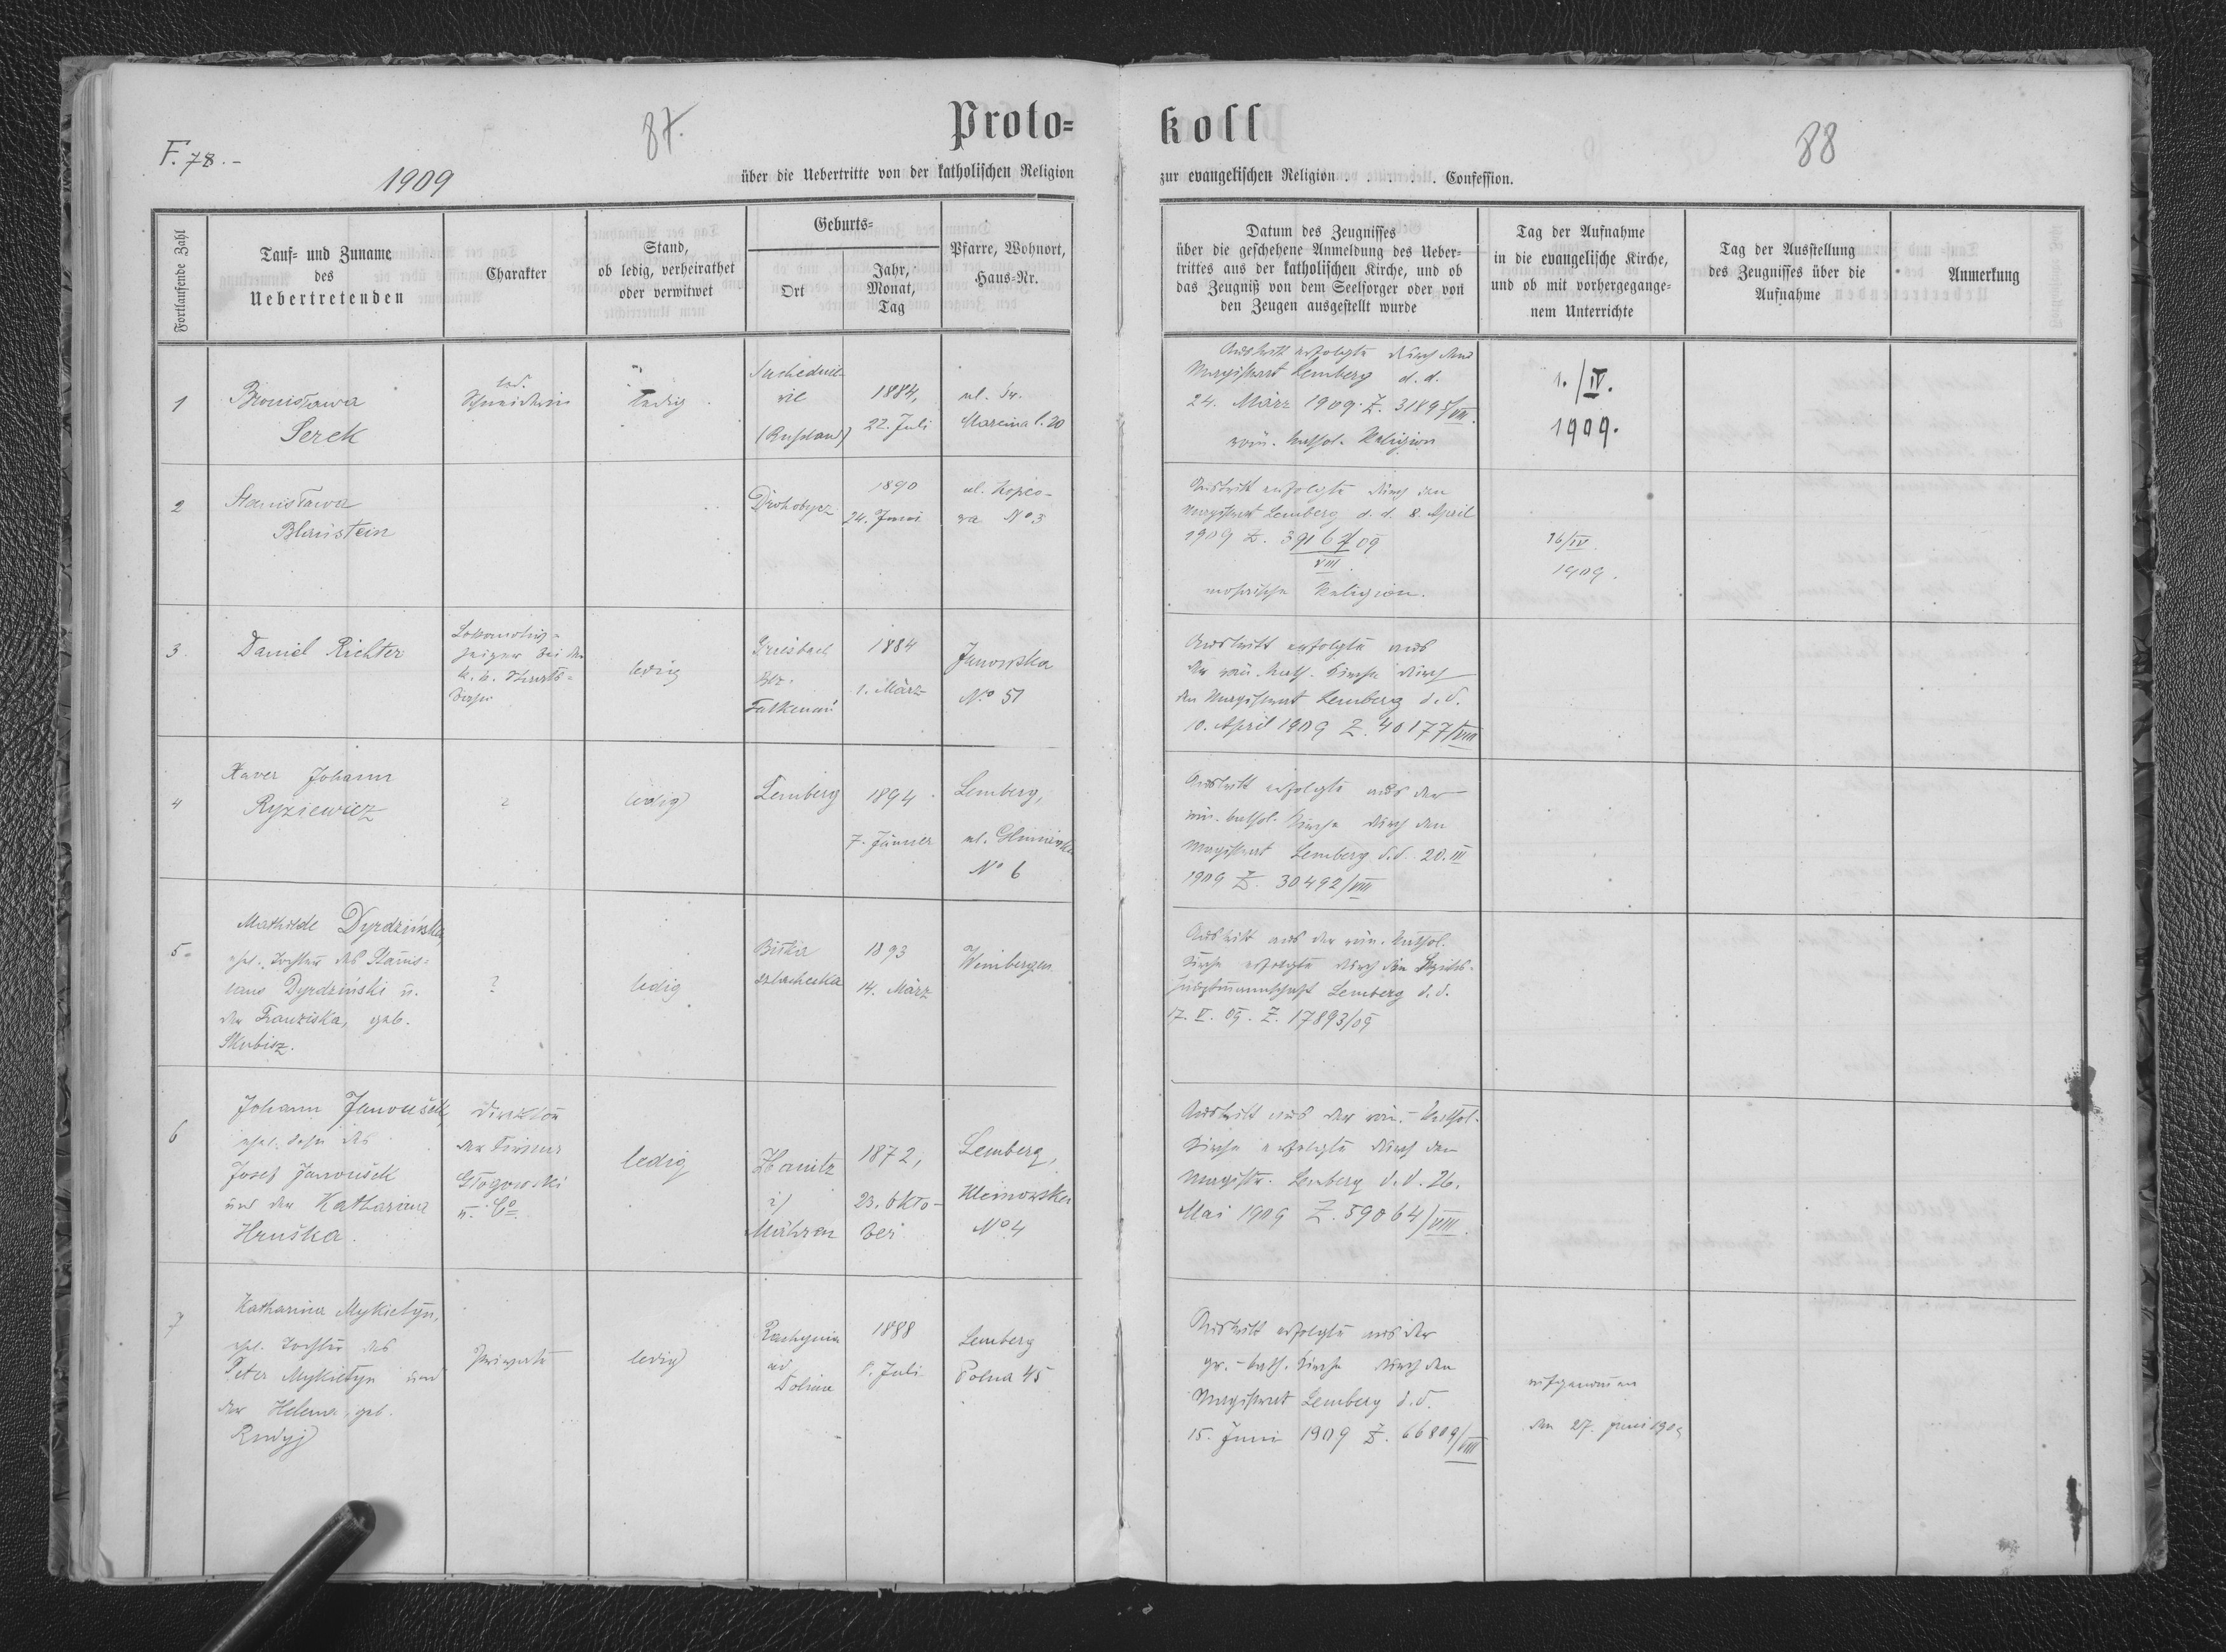 F. 78.-
87.
1909
Proto=
über die Uebertritte von der katholischen Religion
Fortlaufende Zahl
Tauf= und Zuname
des
Uebertretenden
Charakter
Stand,
ob ledig, verheirathet
oder verwitwet
Geburts=
Ort
Jahr,
Monat,
Tag
Pfarre, Wohnort,
Haus-Nr.
1
Bronisława
Serek
led.
Schneiderin
ledig
(Rußland)
1884,
22. Juli
ul. Św.
Marcina l. 20
2
Stanisława
Blaustein
Drohobycz
1890
24. Juni
ul. Koper-
No 3
3.
Daniel Richter
Lokomotiv=
heizer bei der
k. k. Staats=
bahn
ledig
Griesbach
Bez.
Falkenau
1884
1. März
Janowska
No 51
4
Xaver Johann
Ryziewicz
?
ledig
Lemberg
1894
7. Jänner
Lemberg,
No 6
5.
Mathilde Dyrdzińska,
ehel. Tochter des Stanis=
laus Dyrdziński u.
der Franziska, geb.
Skubisz.
?
ledig
szlachecka
1893
14. März
Weinbergen
6
Johann Janoušek,
ehel. Sohn des
Josef Janoušek
und der Katharina
Hruška.
Direktor
der Firma
Głogowski
u. Co
ledig
Mähren
1872,
23. Okto-
ber
Lemberg,
No 4
7
Katharina Mykietyn,
ehel. Tochter des
Peter Mykietyn und
der Helena, geb.
Rudyj
Private
ledig
ad
Dolina
1888
Juli
Lemberg
Polna 45
koll
88
zur evangelischen Religion . . . . . . Confession.
Datum des Zeugnisses
über die geschehene Anmeldung des Ueber-
trittes aus der katholischen Kirche, und ob
das Zeugniß von dem Seelsorger oder von
den Zeugen ausgestellt wurde
Tag der Aufnahme
in die evangelische Kirche,
und ob mit vorhergegange-
nem Unterrichte
Tag der Ausstellung
des Zeugnisses über die
Aufnahme
Anmerkung
Austritt erfolgte durch den
Magistrat Lemberg d. d.
24. März 1909. Z. 31895/VIII.
röm. kathol. Religion
1./IV.
1909.
Austritt erfolgte durch den
Magistrat Lemberg d. d. 8. April
1909 Z. 39167/09
VIII
mosaische Religion.
16/IV.
1909.
Austritt erfolgte aus
der röm. kath. Kirche durch
den Magistrat Lemberg d. d.
10. April 1909 Z. 40177/VIII
Austritt erfolgte aus der
röm. kathol. Kirche durch den
Magistrat Lemberg d. d. 20. III
1909 Z. 30492/VIII
Austritt aus der röm. kathol.
Kirche erfolgte durch die Bezirks-
hauptmannschaft Lemberg d. d.
17. V. 09. Z. 17893/09
Austritt aus der röm.-kathol.
Kirche erfolgte durch den
Magistr. Lemberg d. d. 26.
Mai 1909 Z. 59064/VIII.
Austritt erfolgte aus der
gr.-kath. Kirche durch den
Magistrat Lemberg d. d.
15. Juni 1909 Z. 66809/VIII
aufgenommen
den 27. Juni 1909